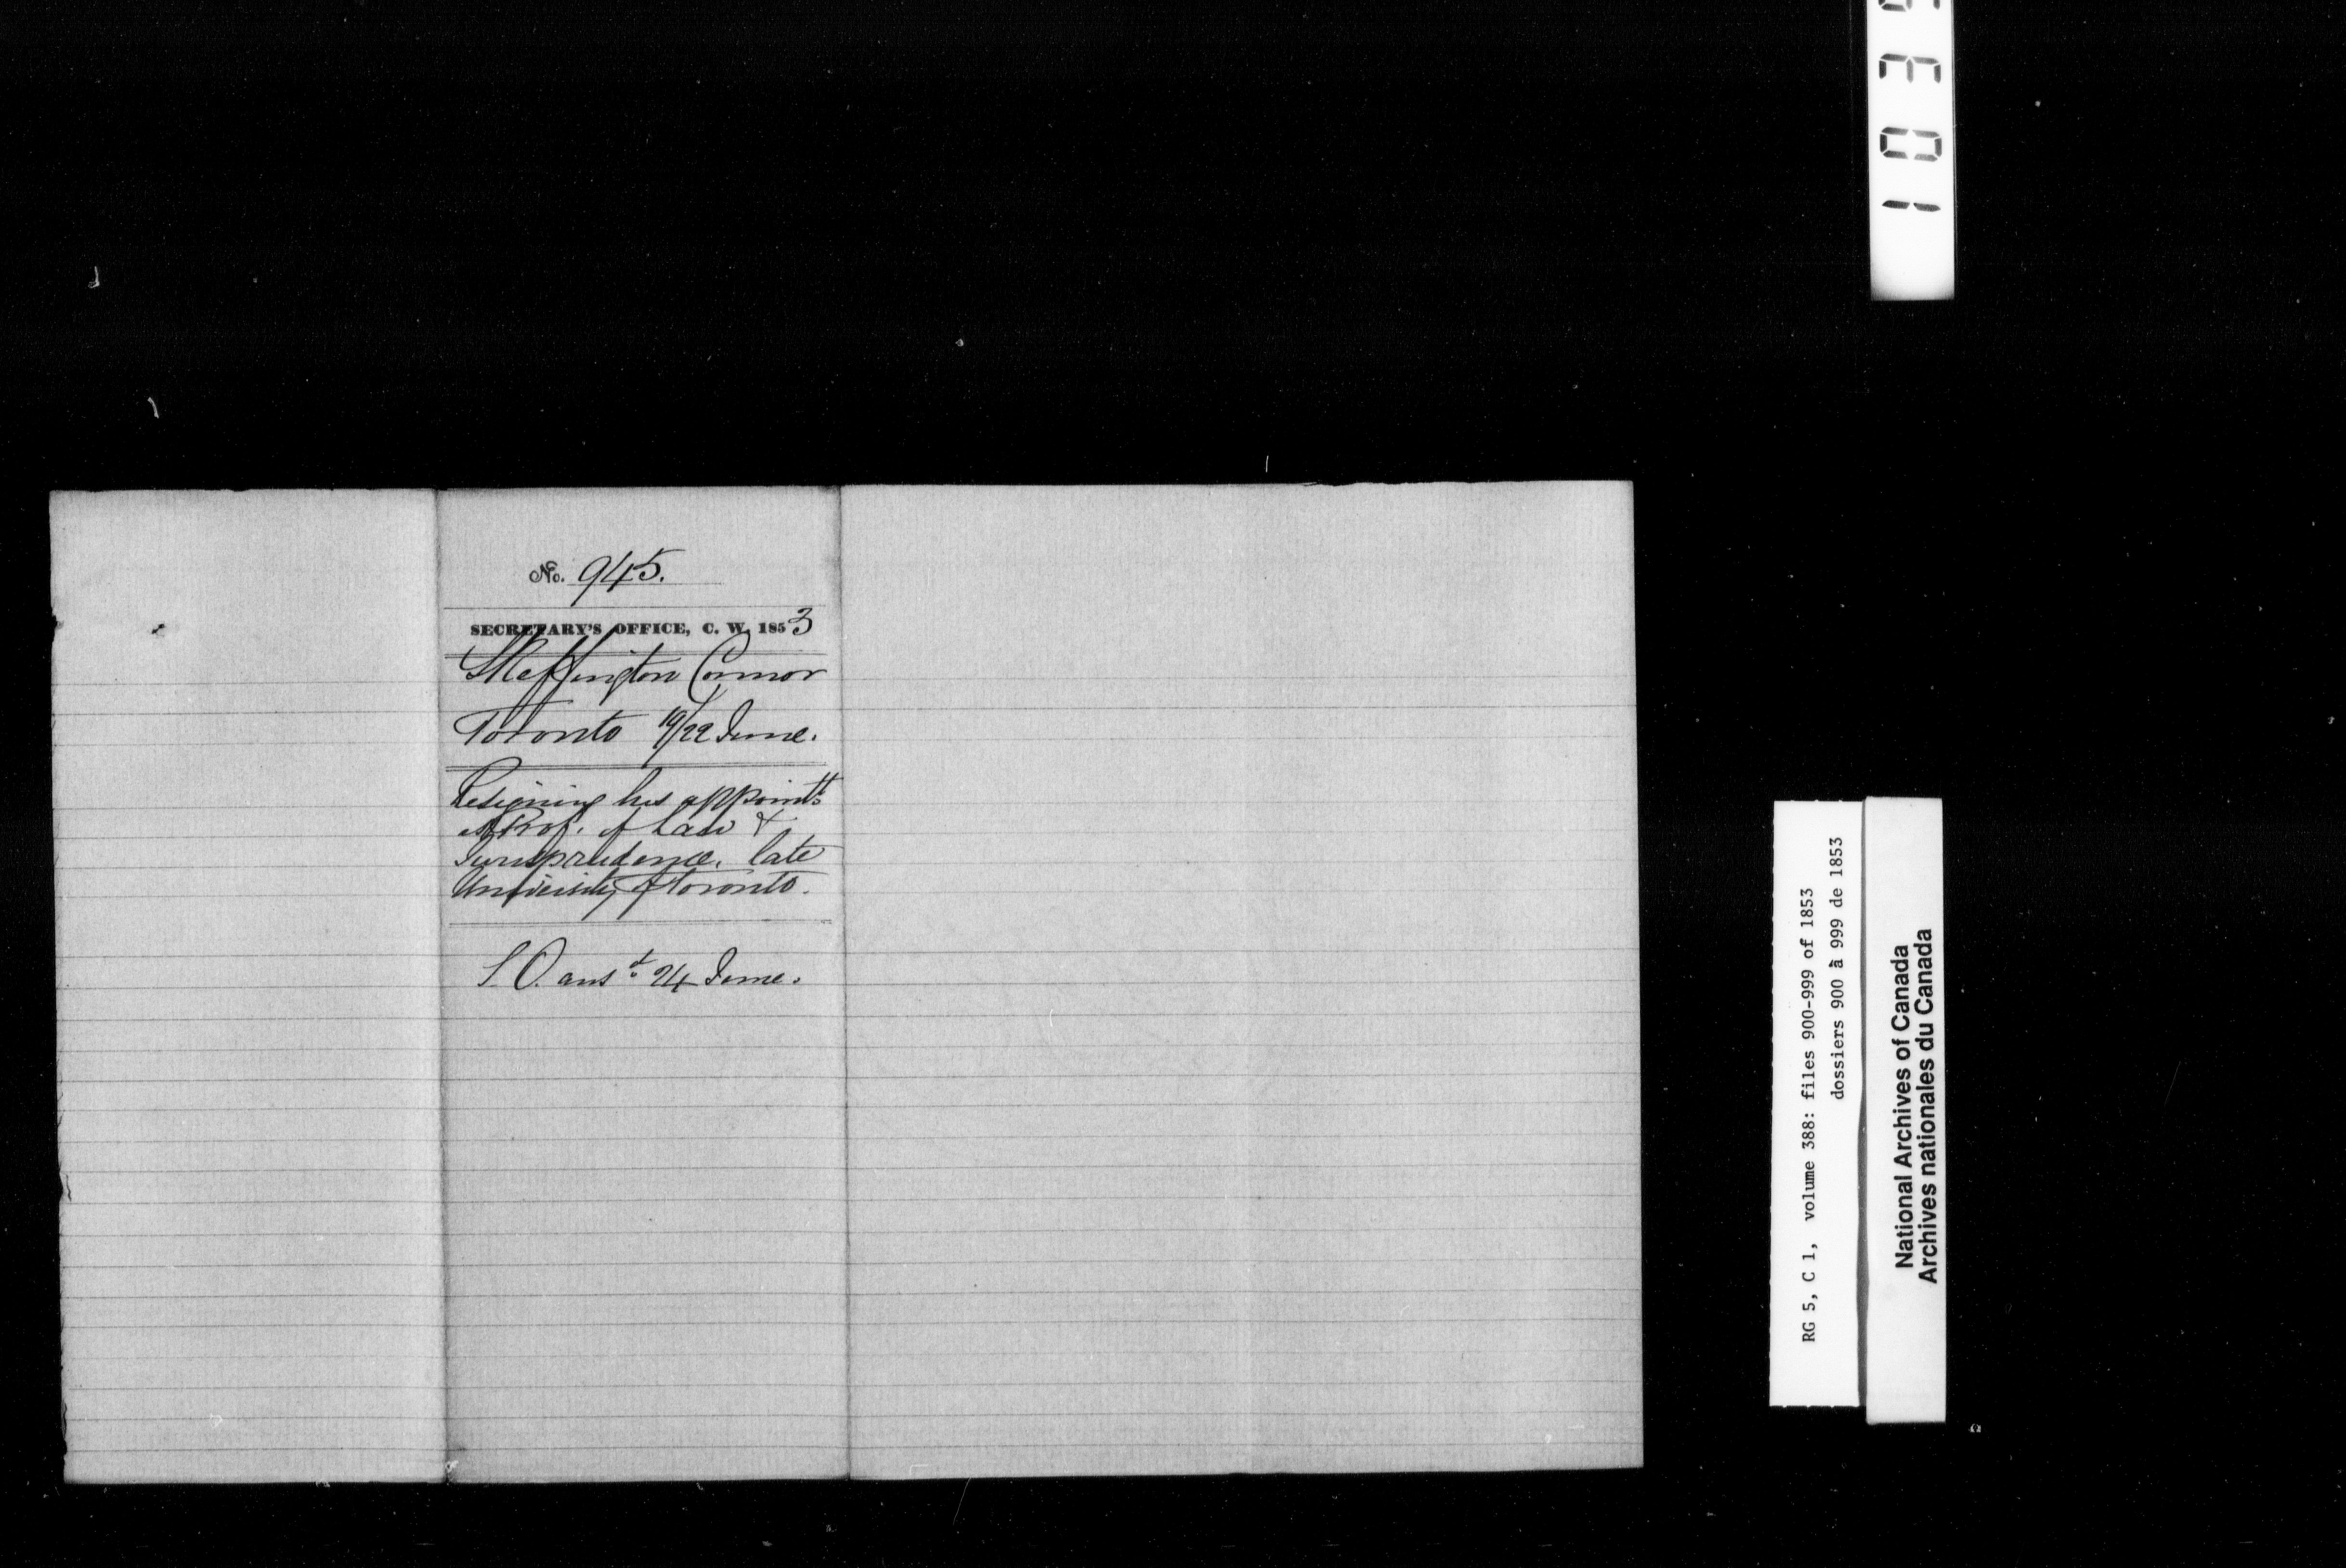 No. 945.
SECRETARY'S OFFICE, C. W. 1853
Skeffington Connor
Toronto 19/22 June.
Resigning his appointt
as Prof. of Law &
Jurisprudence, late
University of Toronto.
S. O. ansd 24 June.
RG 5, C 1, volume 388: files 900-999 of 1853
dossiers 900 à 999 de 1853
National Archives of Canada
Archives nationales du Canada
103